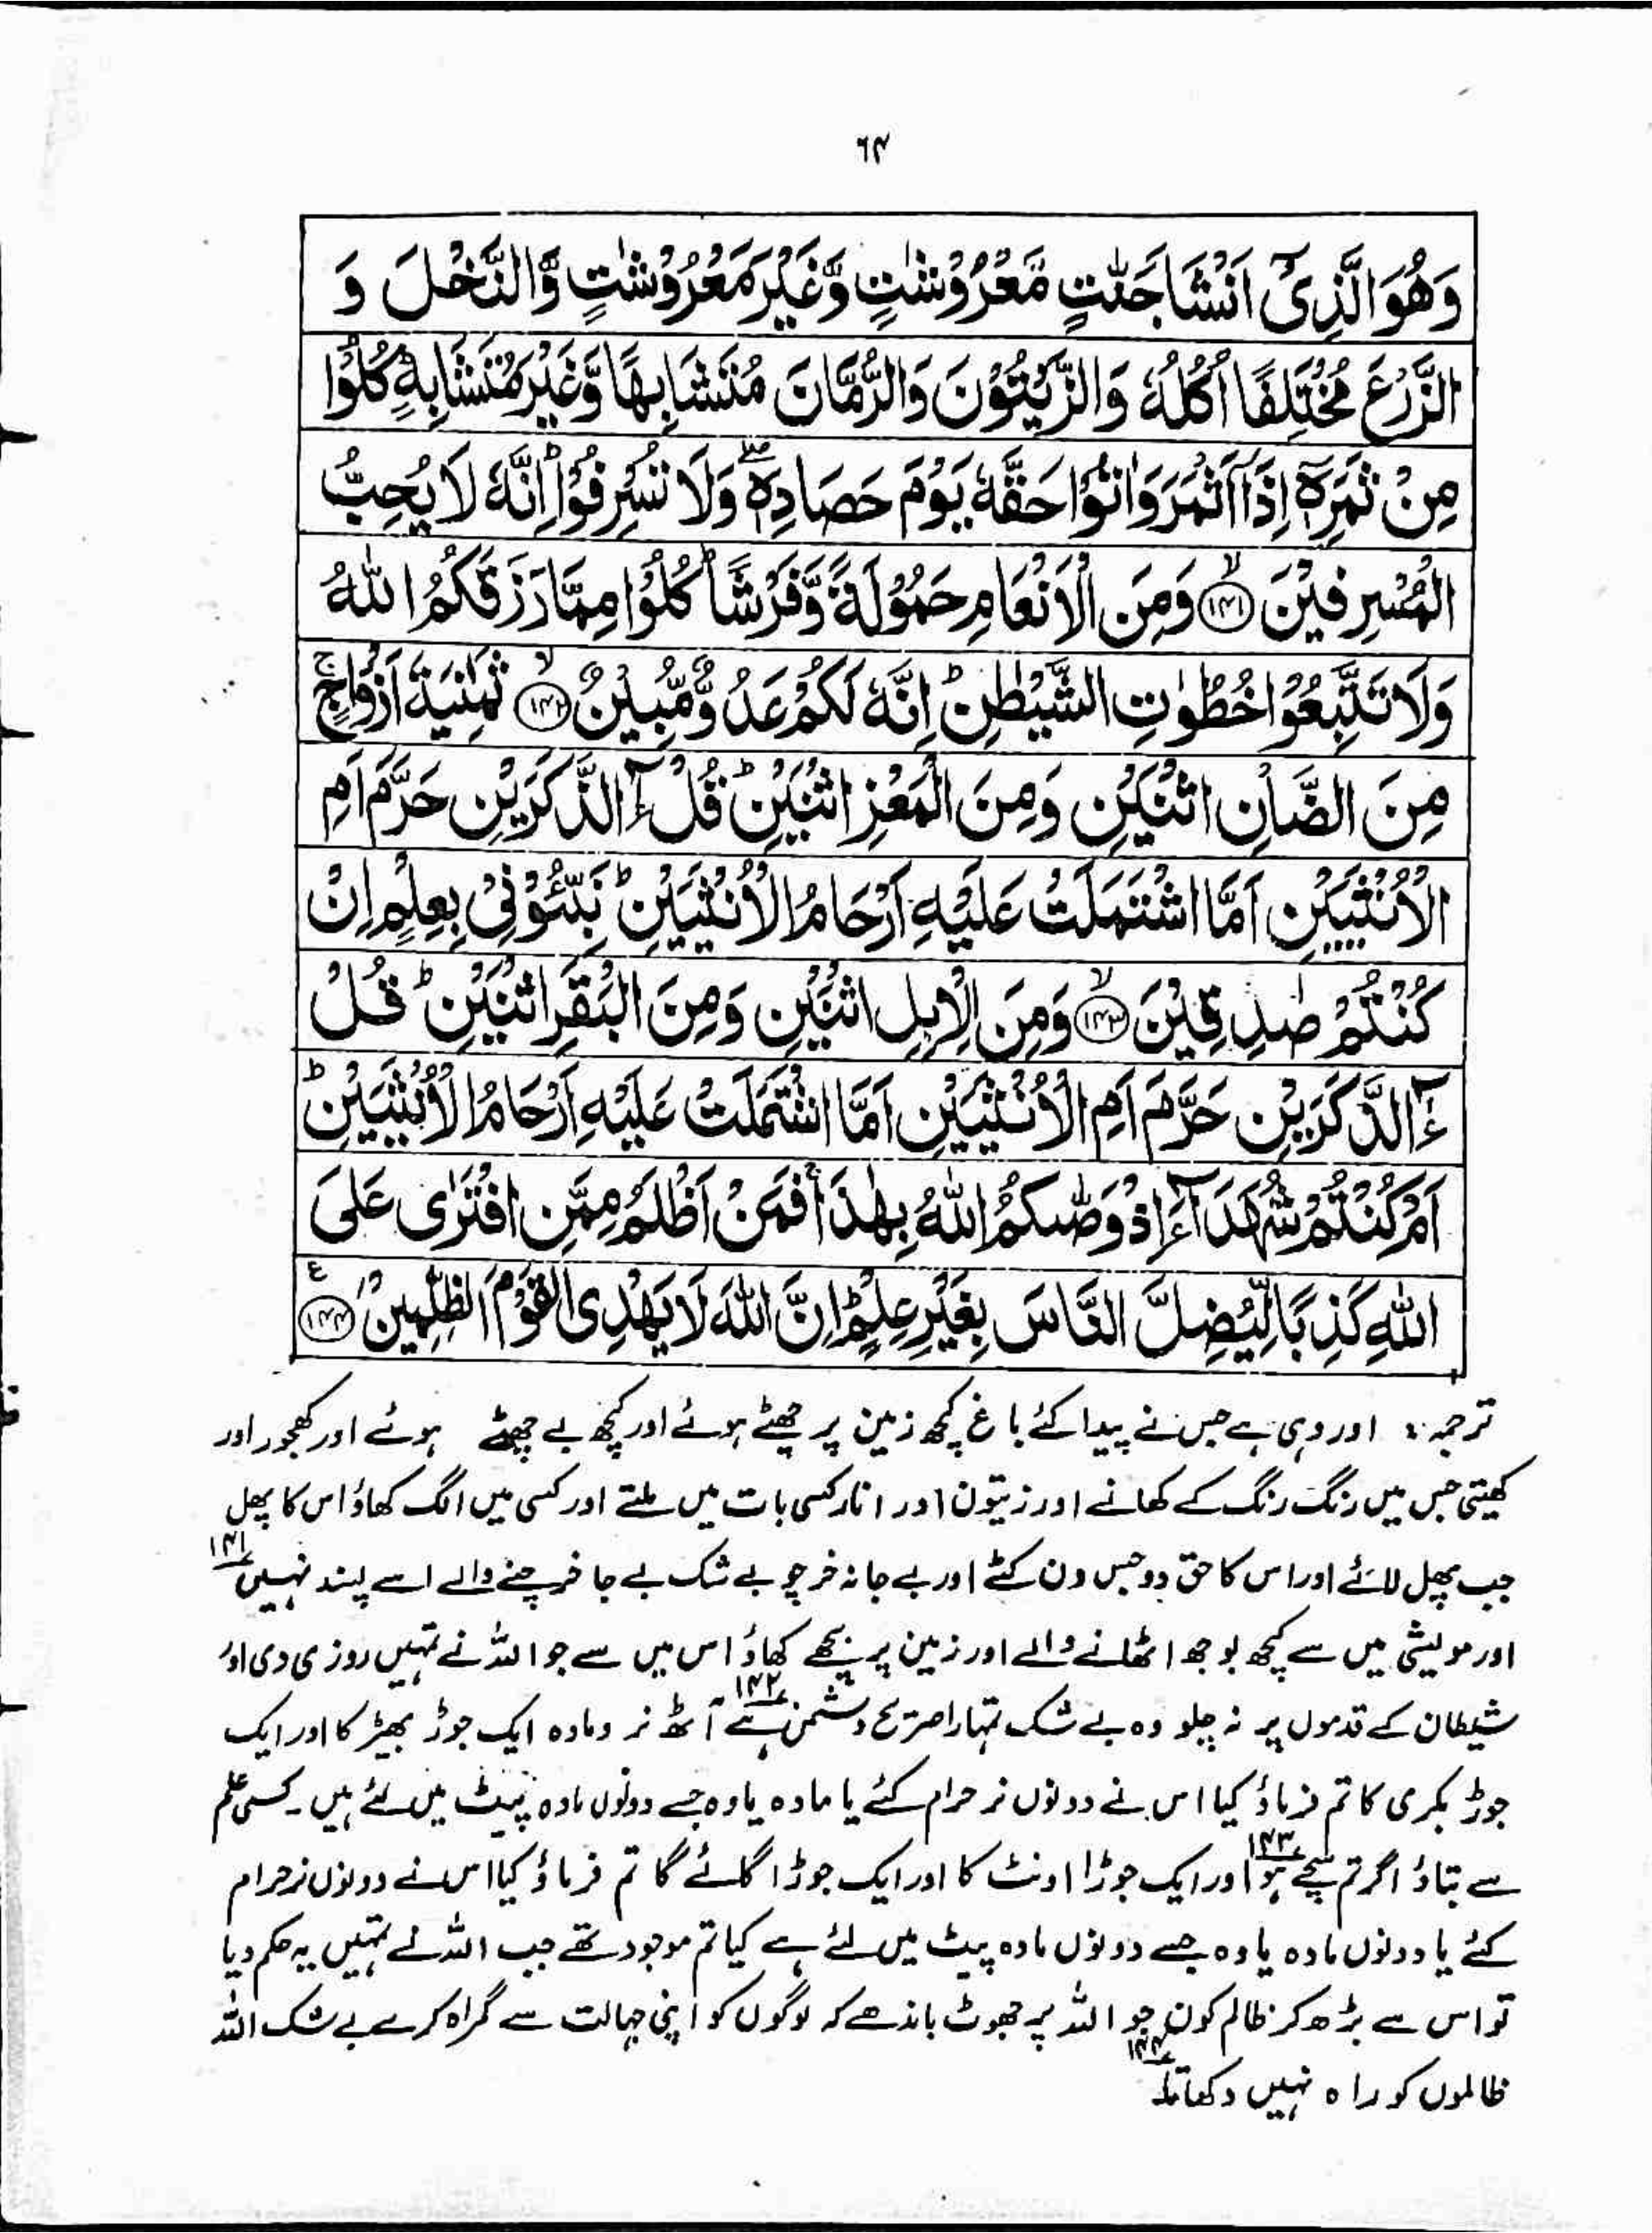 ٦٤
وَهُوَ الَّذِیْۤ اَنْشَاَ جَنّٰتٍ مَّعْرُوْشٰتٍ وَّغَیْرَ مَعْرُوْشٰتٍ وَّالنَّخْلَ وَ
الزَّرْعَ مُخْتَلِفًا اُكُلُهٗ وَالزَّیْتُوْنَ وَالرُّمَّانَ مُتَشَابِهًا وَّغَیْرَ مُتَشَابِهٍؕ كُلُوْا
مِنْ ثَمَرِهٖۤ اِذَاۤ اَثْمَرَ وَاٰتُوْا حَقَّهٗ یَوْمَ حَصَادِهٖ ۖ وَلَا تُسْرِفُوْاؕ اِنَّهٗ لَا یُحِبُّ
الْمُسْرِفِیْنَ ۙ﴿۱۴۱﴾ وَمِنَ الْاَنْعَامِ حَمُوْلَةً وَّفَرْشًاؕ كُلُوْا مِمَّا رَزَقَكُمُ اللّٰهُ
وَلَا تَتَّبِعُوْا خُطُوٰتِ الشَّیْطٰنِؕ اِنَّهٗ لَكُمْ عَدُوٌّ مُّبِیْنٌ ۙ﴿۱۴۲﴾ ثَمٰنِیَةَ اَزْوَاجٍۚ
مِنَ الضَّاْنِ اثْنَیْنِ وَمِنَ الْمَعْزِ اثْنَیْنِؕ قُلْ ءٰٓالذَّكَرَیْنِ حَرَّمَ اَمِ
الْاُنْثَیَیْنِ اَمَّا اشْتَمَلَتْ عَلَیْهِ اَرْحَامُ الْاُنْثَیَیْنِؕ نَبِّـُٔوْنِیْ بِعِلْمٍ اِنْ
كُنْتُمْ صٰدِقِیْنَ ۙ﴿۱۴۳﴾ وَمِنَ الْاِبِلِ اثْنَیْنِ وَمِنَ الْبَقَرِ اثْنَیْنِؕ قُلْ
ءٰٓالذَّكَرَیْنِ حَرَّمَ اَمِ الْاُنْثَیَیْنِ اَمَّا اشْتَمَلَتْ عَلَیْهِ اَرْحَامُ الْاُنْثَیَیْنِؕ
اَمْ كُنْتُمْ شُهَدَآءَ اِذْ وَصّٰىكُمُ اللّٰهُ بِهٰذَاۚ فَمَنْ اَظْلَمُ مِمَّنِ افْتَرٰی عَلَی
اللّٰهِ كَذِبًا لِّیُضِلَّ النَّاسَ بِغَیْرِ عِلْمٍؕ اِنَّ اللّٰهَ لَا یَهْدِی الْقَوْمَ الظّٰلِمِیْنَ ﴿۱۴۴﴾ ع
ترجمہ: اور وہی ہے جس نے پیدا کئے باغ کچھ زمین پر چھٹے ہوئے اور کچھ بے چھٹے ہوئے اور کھجور اور
کھیتی جس میں رنگ رنگ کے کھانے اور زیتون اور انار کسی بات میں ملتے اور کسی میں الگ کھاؤ اس کا پھل
جب پھل لائے اور اس کا حق دو جس دن کٹے اور بے جا نہ خرچو بے شک بے جا خرچنے والے اسے پسند نہیں ۱۴۱
اور مویشی میں سے کچھ بوجھ اٹھانے والے اور زمین پر بچھے کھاؤ اس میں سے جو اللہ نے تمہیں روزی دی اور
شیطان کے قدموں پر نہ چلو وہ بے شک تمہارا صریح دشمن ہے ۱۴۲ آٹھ نر و مادہ ایک جوڑ بھیڑ کا اور ایک
جوڑ بکری کا تم فرماؤ کیا اس نے دونوں نر حرام کئے یا مادہ یا وہ جسے دونوں مادہ پیٹ میں لئے ہیں۔ کسی علم
سے بتاؤ اگر تم سچے ہو ۱۴۳ اور ایک جوڑا اونٹ کا اور ایک جوڑا گائے گا تم فرماؤ کیا اس نے دونوں نر حرام
کئے یا دونوں مادہ یا وہ جسے دونوں مادہ پیٹ میں لئے ہے کیا تم موجود تھے جب اللہ نے تمہیں یہ حکم دیا
تو اس سے بڑھ کر ظالم کون جو اللہ پر جھوٹ باندھے کہ لوگوں کو اپنی جہالت سے گمراہ کرے بے شک اللہ
ظالموں کو راہ نہیں دکھاتا ۱۴۴